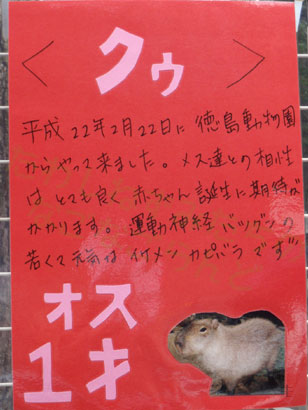 ＜クゥ＞
平成22年2月22日に徳島動物園
からやって来ました。メス達との相性
はとても良く赤ちゃん誕生に期待が
かかります。運動神経バツグンの
若くて イケメン カピバラ です
オス
1才